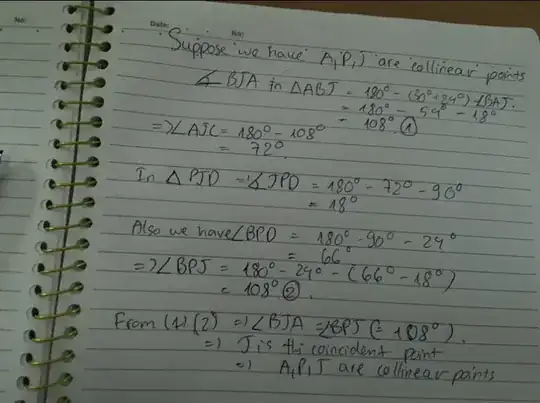 No:
Date:
No:
Suppose we have A,P,J are collinear points
∡ BJA in ΔABJ = 180° - (30°+24°) - ∠BAJ.
= 180° - 54° - 18°
= 108° ①
=> ∠AJC = 180° - 108°
= 72°.
In Δ PJD => ∡JPD = 180° - 72° - 90°
= 18°
Also we have ∠BPD = 180° - 90° - 24°
= 66°
=> ∠BPJ = 180° - 24° - (66° - 18°)
= 108° ②.
From (1)(2) => ∠BJA = ∠BPJ (= 108°).
=> J is the coincident point
=> A,P,J are collinear points